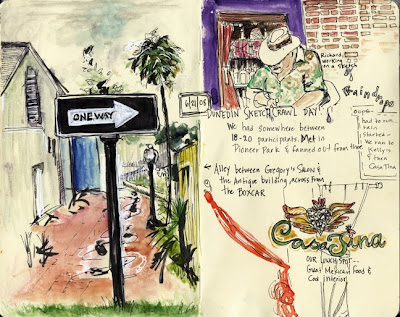 ONE WAY
6/21/08
Richard,
working
on a sketch
Raindrops
DUNEDIN SKETCHCRAWL DAY!
We had somewhere between
18-20 participants. Met in
Pioneer Park & fanned out from there
OOPS-
had to run -
rain
started -
We ran to
Kelly's
& then
Casa Tina
← Alley between Gregory's Salon &
the Antique building across from
The BOXCAR
Casa Tina
OUR LUNCH SPOT --
Great Mexican Food &
Cool interior!